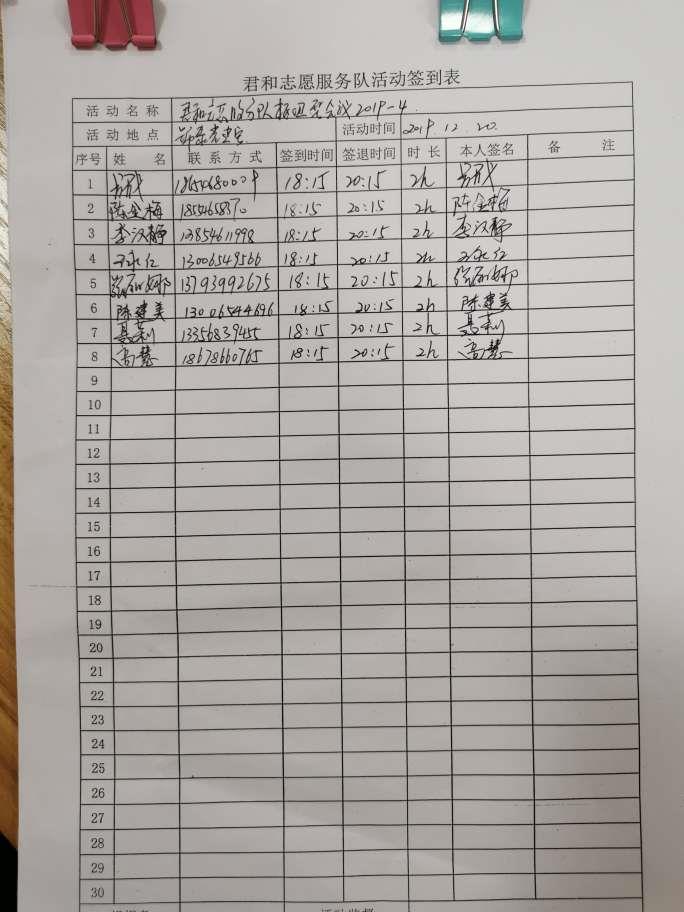 君和志愿服务队活动签到表
活动名称 君和志愿服务队 会议2019-4
活动地点 活动时间 2019.12.20
序号 姓名 联系方式 签到时间 签退时间 时长 本人签名 备注
1 18:15 20:15 2h
2 陈金梅 18:15 20:15 2h 陈金梅
3 李汉静 13854611998 18:15 20:15 2h 李汉静
4 13006549566 18:15 20:15 2h
5 13793992675 18:15 20:15 2h
6 陈建美 13006544696 18:15 20:15 2h 陈建美
7 聂莉 13356839455 18:15 20:15 2h 聂莉
8 高慧 18678660765 18:15 20:15 2h 高慧
9
10
11
12
13
14
15
16
17
18
19
20
21
22
23
24
25
26
27
28
29
30